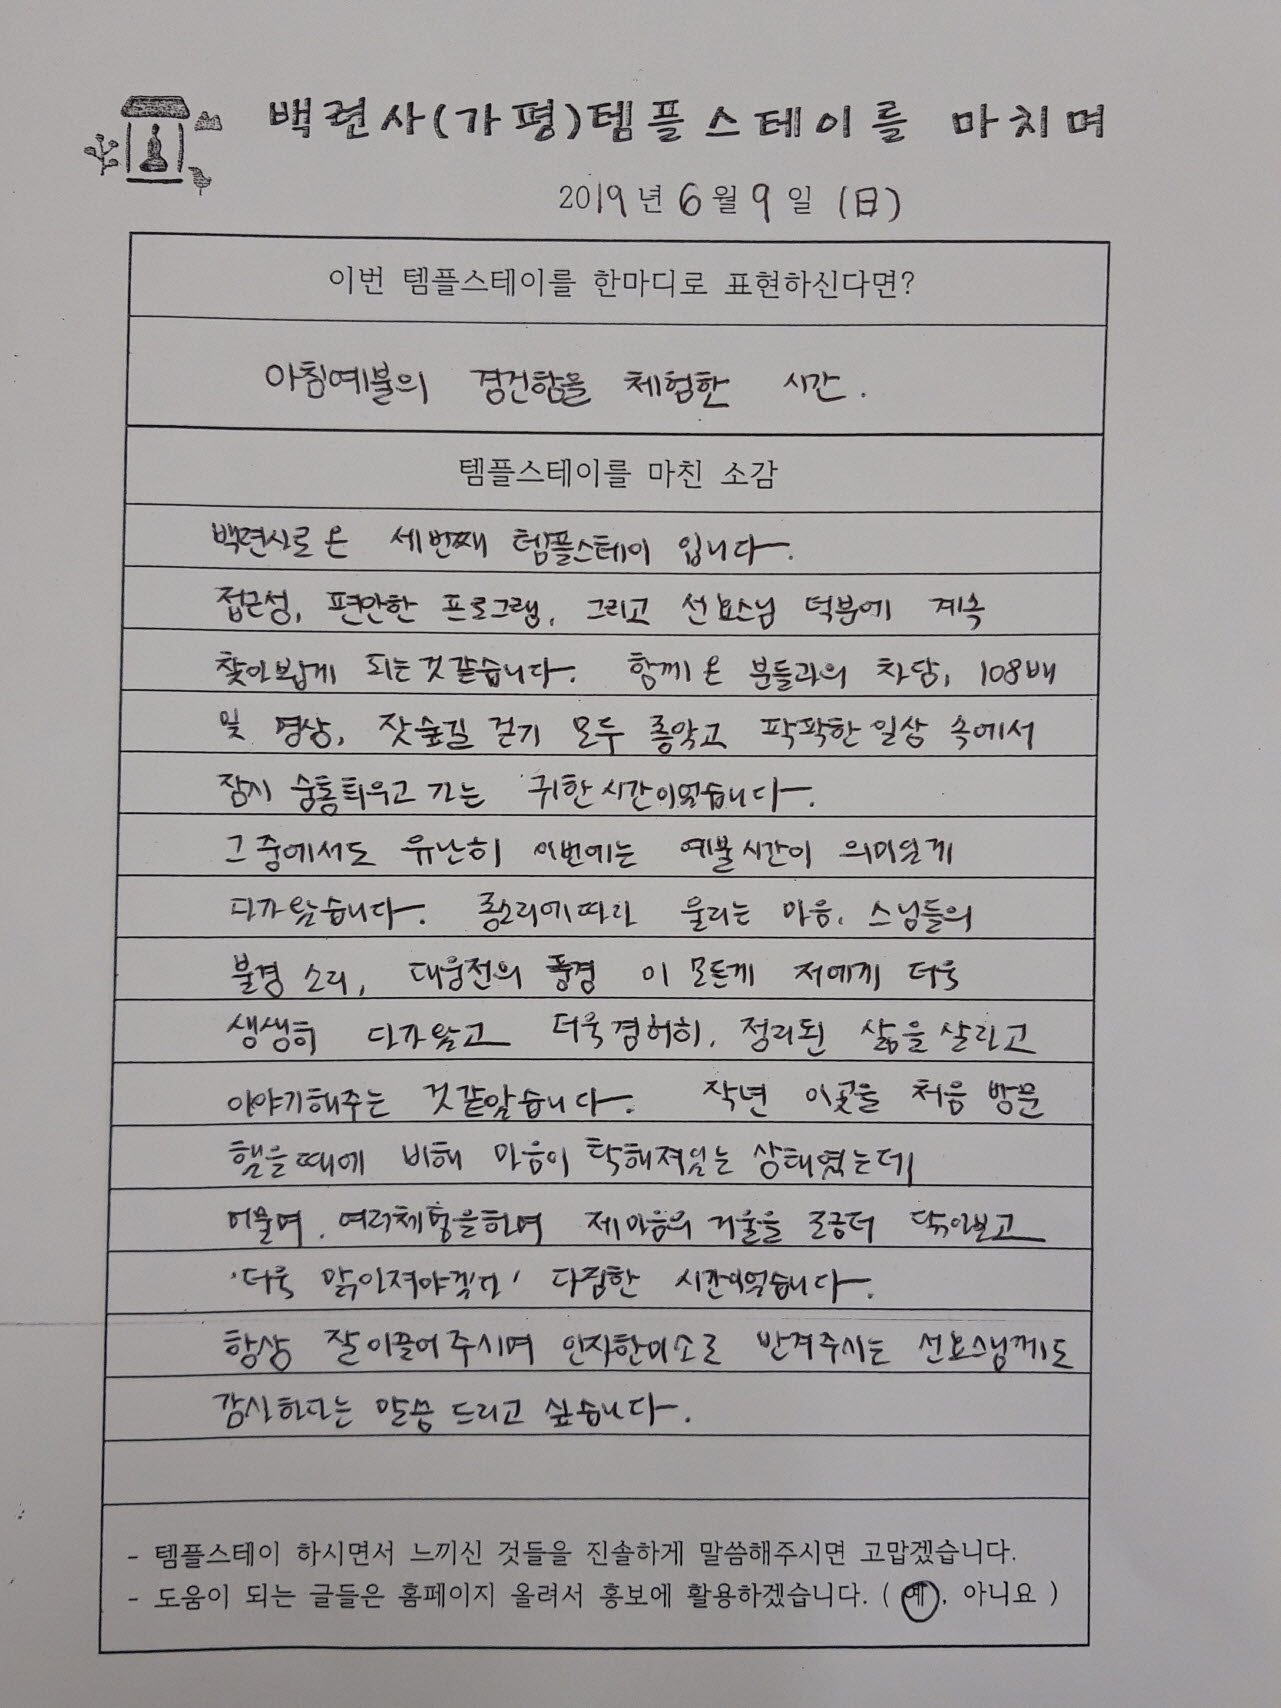 백련사(가평)템플스테이를 마치며
2019년 6월 9일 (日)
이번 템플스테이를 한마디로 표현하신다면?
아침예불의 경건함을 체험한 시간.
템플스테이를 마친 소감
백련사로 온 세번째 템플스테이 입니다.
접근성, 편안한 프로그램, 그리고 선요스님 덕분에 계속
찾아뵙게 되는것같습니다. 함께 온 분들과의 차담, 108배
및 명상, 잣숲길 걷기 모두 좋았고 팍팍한 일상 속에서
잠시 숨통틔우고 가는 귀한 시간이었습니다.
그 중에서도 유난히 이번에는 예불시간이 의미있게
다가왔습니다. 종소리에따라 울리는 마음, 스님들의
불경 소리, 대웅전의 풍경 이 모든게 저에게 더욱
생생히 다가왔고 더욱 겸허히, 정리된 삶을 살라고
이야기해주는 것같았습니다. 작년 이곳을 처음 방문
했을때에 비해 마음이 탁해져있는 상태였는데
머물며, 여러체험을하며 제마음의 거울을 조금더 닦아보고
'더욱 맑아져야겠다' 다짐한 시간이었습니다.
항상 잘 이끌어주시며 인자한미소로 반겨주시는 선요스님께도
감사하다는 말씀 드리고 싶습니다.
- 템플스테이 하시면서 느끼신 것들을 진솔하게 말씀해주시면 고맙겠습니다.
- 도움이 되는 글들은 홈페이지 올려서 홍보에 활용하겠습니다. ( 예, 아니요 )